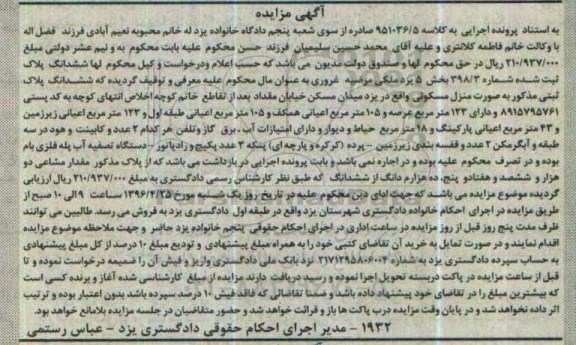 آگهی مزایده
به استناد پرونده اجرایی به کلاسه ۹۵۱۰۳۶/۵ صادره از سوی شعبه پنجم دادگاه خانواده یزد له خانم محبوبه نعیم آبادی فرزند فضل اله
با وکالت خانم فاطمه کلانتری و علیه آقای محمد حسین سلیمیان فرزند حسن محکوم علیه بابت محکوم به و نیم عشر دولتی مبلغ
۲۱۰/۹۳۷/۰۰۰ ریال در حق محکوم لها و صندوق دولت مدیون می باشد که حسب اعلام ودرخواست و کیل محکوم لها ششدانگ پلاک
ثبت شده شماره ۳۹۸/۳ بخش ۵ یزد ملکی مرضیه غروری به عنوان مال محکوم علیه معرفی و توقیف گردیده که ششدانگ پلاک
ثبتی مذکور به صورت منزل مسکونی واقع در یزد میدان مسکن خیابان مقداد بعد از تقاطع خانم کوچه اخلاص انتهای کوچه به کد پستی
۸۹۱۵۷۹۵۷۶۱ و دارای ۱۲۳ متر مربع عرصه و ۱۰۵ متر مربع اعیانی همکف و ۱۰۵ متر مربع اعیانی طبقه اول و ۱۲۳ متر مربع اعیانی زیرزمین
و ۴۳ متر مربع اعیانی پارکینگ و ۱۸ متر مربع حیاط و دیوار و دارای امتیازات آب ، برق گاز وتلفن هر کدام ۲ عدد و کابینت و هود در سه
طبقه و آبگرمکن ۲ عدد و قفسه بندی زیرزمین - پرده (کرکره و پارچه ای) پنکه ۲ عدد پکیج و رادیاتور - دستگاه تصفیه آب پله فلزی بام
بوده و در تصرف محکوم علیه بوده و در اجاره نمی باشد و بابت پرونده اجرایی در بازداشت می باشد که از پلاک مذکور مقدار مشاعی دو
هزار و ششصد و هفتادو پنج، ده هزارم دانگ از ششدانگ که طبق نظر کارشناس رسمی دادگستری به مبلغ ۲۱۰/۹۳۷/۰۰۰ ریال ارزیابی
گردیده موضوع مزایده می باشد که جهت ادای دین محکوم علیه در تاریخ روز یک شنبه مورخ ۱۳۹۶/۲/۲۵ ساعت ۹ الی ۱۰ صبح از
طریق مزایده در اجرای احکام خانواده دادگستری شهرستان یزد واقع در طبقه اول دادگستری یزد به فروش می رسد. طالبین می توانند
ظرف مدت پنج روز قبل از روز مزایده در ساعت اداری در اجرای احکام حقوقی پنجم خانواده یزد حاضر و جهت ملاحظه موضوع مزایده
اقدام نمایند و در صورت تمایل به خرید آن تقاضای کتبی خود را به همراه مبلغ پیشنهادی و تودیع مبلغ ۱۰ درصد از کل مبلغ پیشنهادی
به حساب سپرده دادگستری یزد به شماره ۲۱۷۱۲۹۵۸۰۶۰۰۴ نزد بانک ملی دادگستری واریز و فیش آن را ضمیمه درخواست نموده و تا
قبل از ساعت مزایده در پاکت دربسته تحویل اجرا نموده و رسید دریافت دارند مزایده از مبلغ کارشناسی شده آغاز و برنده کسی است
که بیشترین مبلغ را در تقاضای خود پیشنهاد داده باشد و ضمنا تقاضائی که فاقد فیش ۱۰ درصد سپرده باشد بدون اعتبار بوده و ترتیب
اثر داده نخواهد شد و در پایان وقت مزایده درب پاکت ها باز و قرائت خواهد شد و حضور متقاضیان در جلسه مزایده بلامانع خواهد بود.
۱۹۳۲ - مدیر اجرای احکام حقوقی دادگستری یزد - عباس رستمی